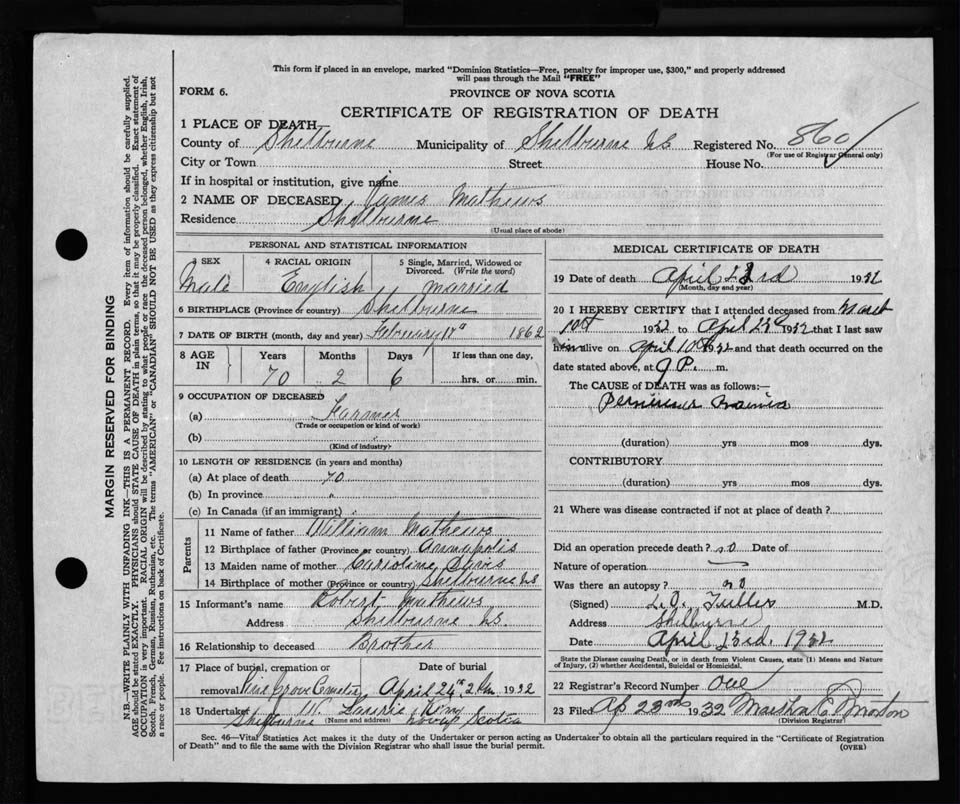 This form if placed in an envelope, marked "Dominion Statistics—Free, penalty for improper use, $300," and properly addressed
will pass through the Mail "FREE"
FORM 6.
PROVINCE OF NOVA SCOTIA
CERTIFICATE OF REGISTRATION OF DEATH
1 PLACE OF DEATH
County of Shelburne Municipality of Shelburne N.S. Registered No. 860
(For use of Registrar General only)
City or Town Street House No.
If in hospital or institution, give name
2 NAME OF DECEASED James Mathews
Residence Shelburne
(Usual place of abode)
PERSONAL AND STATISTICAL INFORMATION
3 SEX 4 RACIAL ORIGIN 5 Single, Married, Widowed or Divorced. (Write the word)
Male English married
6 BIRTHPLACE (Province or country) Shelburne
7 DATE OF BIRTH (month, day and year) February 17th 1862
8 AGE IN Years Months Days If less than one day,
70 2 6 hrs. or min.
9 OCCUPATION OF DECEASED
(a) Farmer
(Trade or occupation or kind of work)
(b)
(Kind of industry)
10 LENGTH OF RESIDENCE (in years and months)
(a) At place of death 70
(b) In province "
(c) In Canada (if an immigrant) "
Parents
11 Name of father William Mathews
12 Birthplace of father (Province or country) Annapolis
13 Maiden name of mother Carioline Davis
14 Birthplace of mother (Province or country) Shelburne NS
15 Informant's name Robert Mathews
Address Shelburne NS.
16 Relationship to deceased Brother
17 Place of burial, cremation or Date of burial
removal Pine Grove Cemetery April 24th 2 Pm 1932
18 Undertaker W. King
Shelburne (Name and address) Nova Scotia
MEDICAL CERTIFICATE OF DEATH
19 Date of death April 23rd 1932
(Month, day and year)
20 I HEREBY CERTIFY that I attended deceased from March
10th 1932 to April 23rd 1932 that I last saw
him alive on April 10th 1932 and that death occurred on
date stated above, at 9 P. m.
The CAUSE of DEATH was as follows:—
Pernicious Anaemia
(duration) yrs mos dys.
CONTRIBUTORY
(duration) yrs. mos. dys.
21 Where was disease contracted if not at place of death?
Did an operation precede death? no Date of
Nature of operation
Was there an autopsy? no
(Signed) L.O. Fuller M.D.
Address Shelburne
Date April 23rd. 1932
State the Disease causing Death, or in death from Violent Causes, state (1) Means and Nature
of Injury, (2) whether Accidental, Suicidal or Homicidal.
22 Registrar's Record Number One
23 Filed Ap 23rd 1932 Martha E. Morton
(Division Registrar)
Sec. 46—Vital Statistics Act makes it the duty of the Undertaker or person acting as Undertaker to obtain all the particulars required in the "Certificate of Registration
of Death" and to file the same with the Division Registrar who shall issue the burial permit.
(OVER)
MARGIN RESERVED FOR BINDING
N.B.—WRITE PLAINLY WITH UNFADING INK—THIS IS A PERMANENT RECORD. Every item of information should be carefully supplied.
AGE should be stated EXACTLY. PHYSICIANS should STATE CAUSE OF DEATH in plain terms, so that it may be properly classified. Exact statement of
OCCUPATION is very important. RACIAL ORIGIN will be described by stating to what people or race the deceased person belonged, whether English, Irish,
Scotch, French, German, Russian, Ruthenian, etc. The terms "AMERICAN" or "CANADIAN" SHOULD NOT BE USED as they express citizenship but not
a race or people. Fee instructions on back of Certificate.